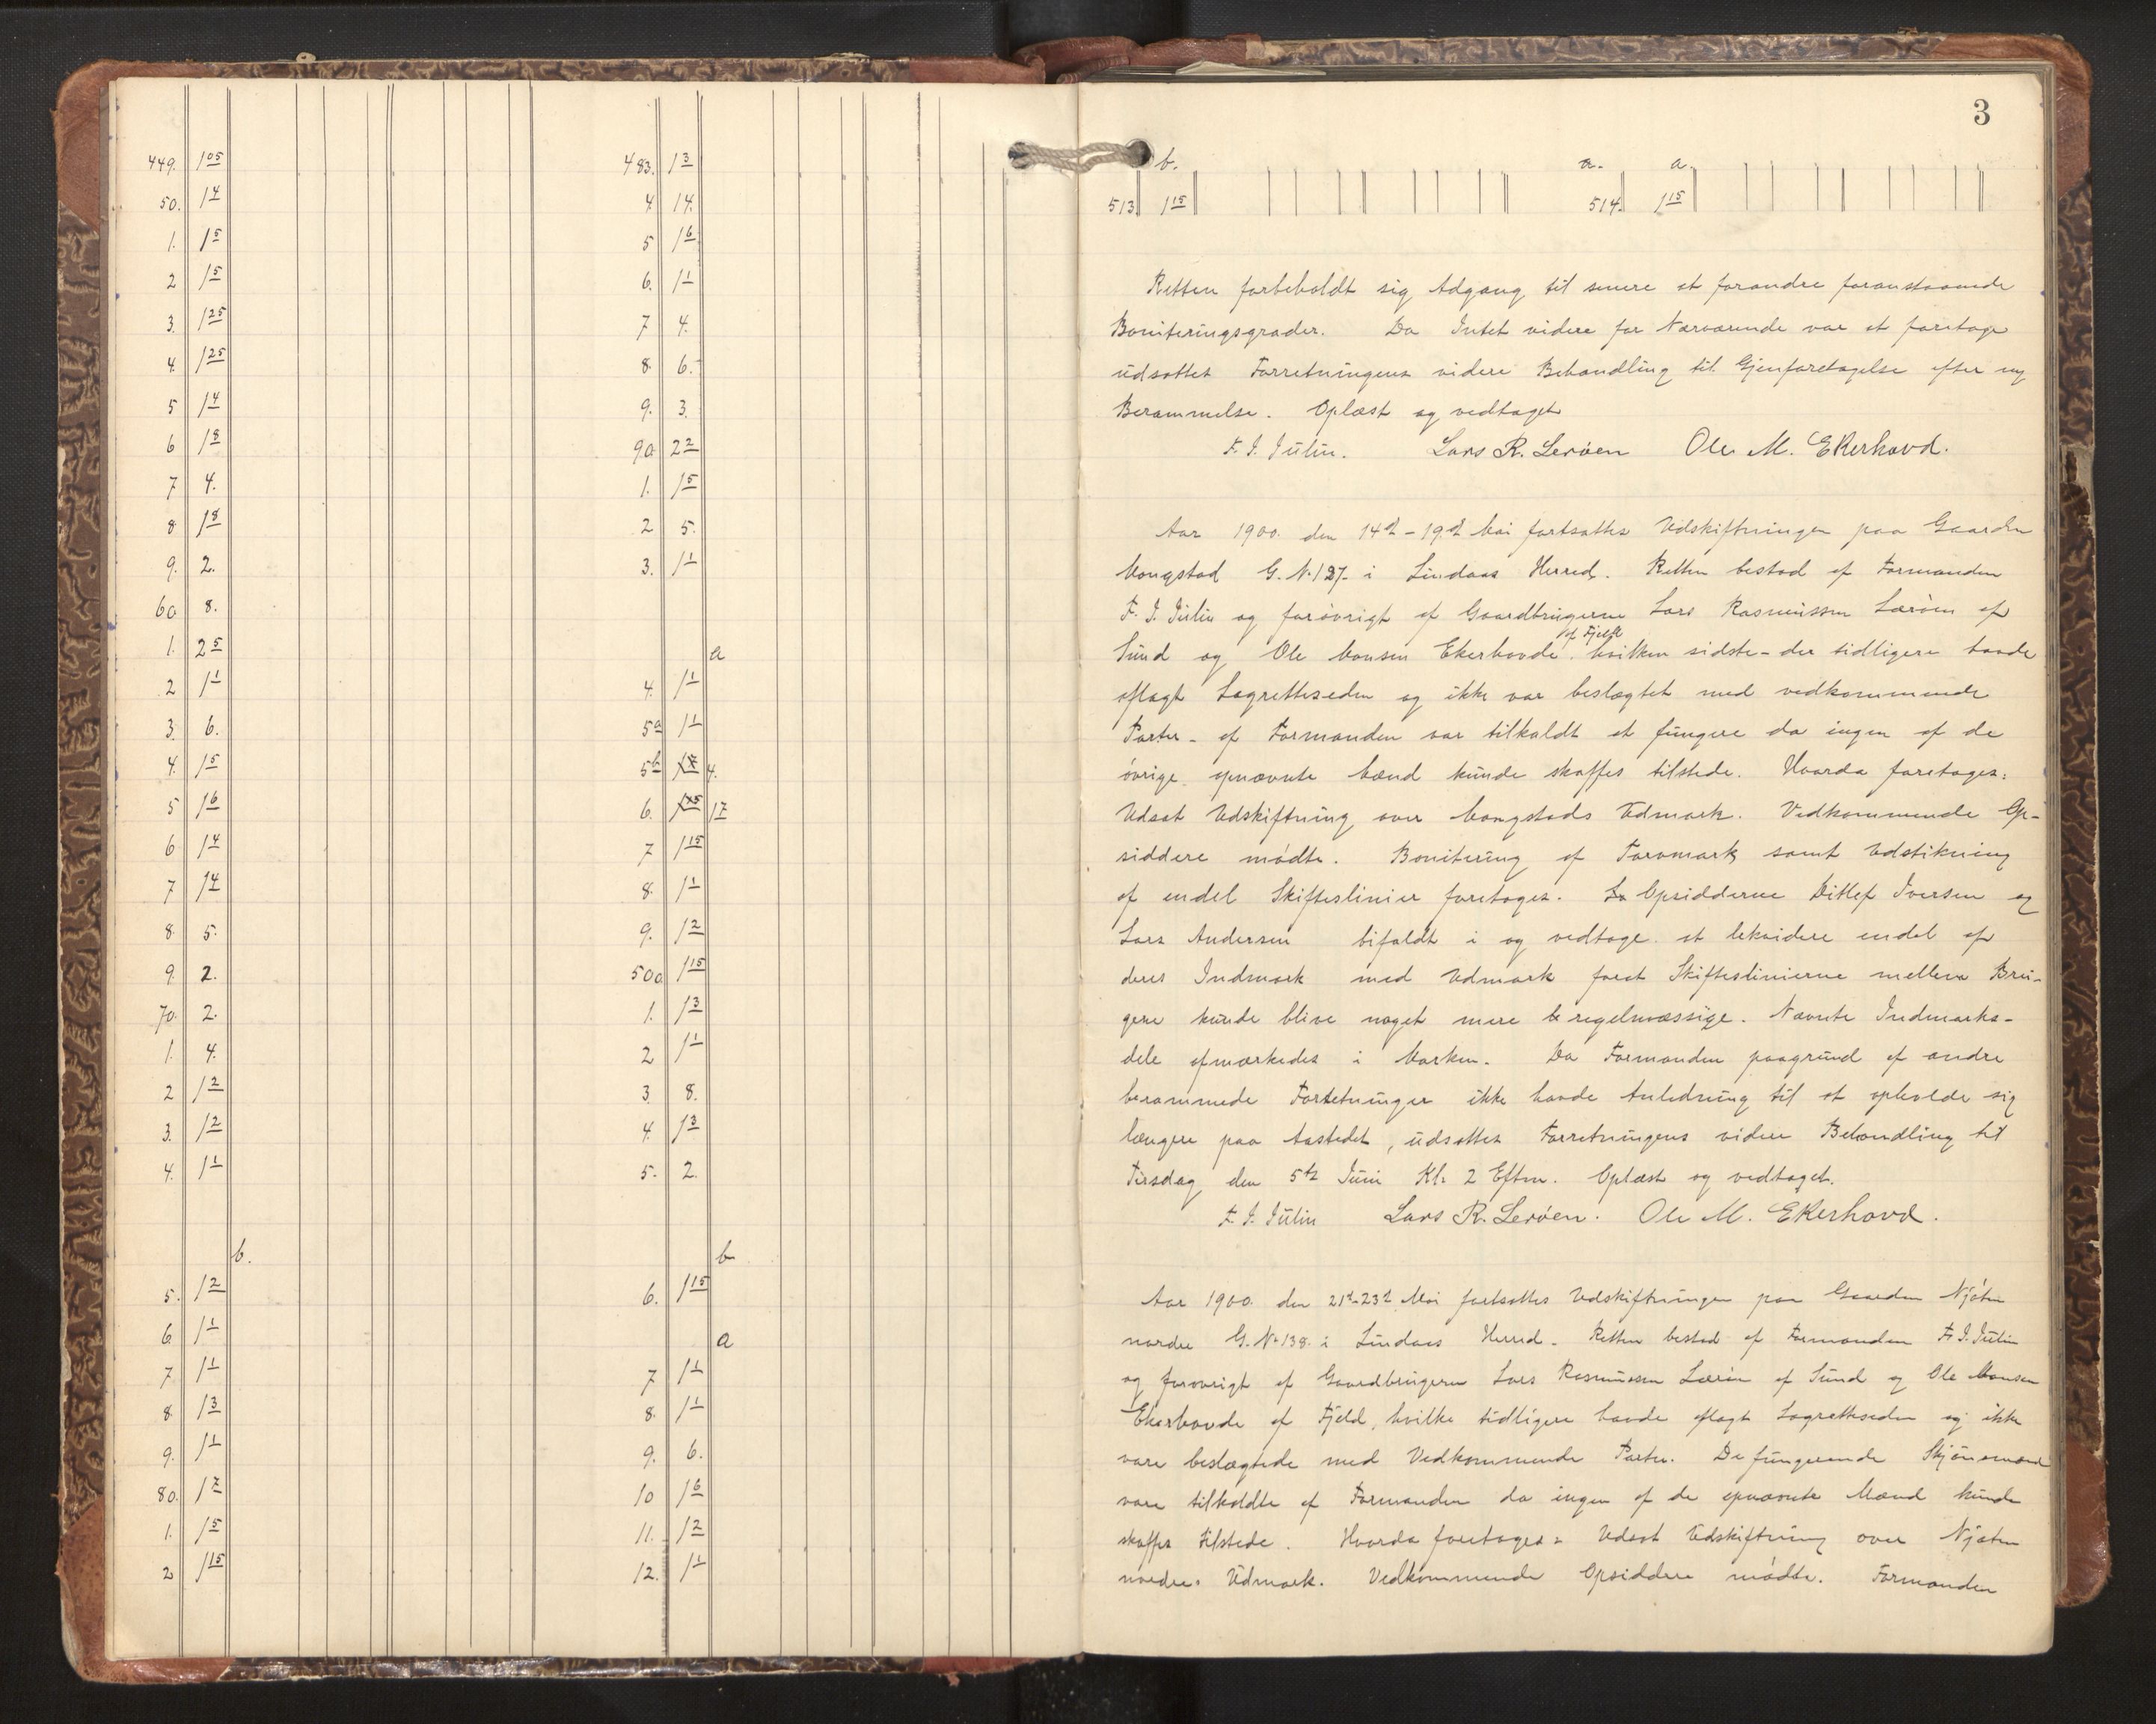 449. 1 05
50. 1 4
1. 1 5
2 1 5
3. 1 25
4. 1 25
5 1 4
6 1 8
7 4.
8 1 8
9. 2.
60 8.
1. 2 5
2 1 1
3. 6.
4. 1 5
5 1 6
6 1 4
7 1 4
8. 5.
9. 2.
70. 2.
1. 4.
2 1 2
3. 1 2
4. 1 1
b.
5. 1 2
6. 1 1
7. 1 1
8. 1 3
9. 1 1
80. 1 2
1. 1 5
2 1 15
483. 1 3
4. 14.
5 1 6
6. 1 1
7 4.
8. 6.
9. 3.
90. 2 2
1. 1 5
2 5.
3. 1 1
a
4. 1 1
5a 1 1
5b 4.
6. 1 7
7 1 15
8. 1 1
9. 1 2
500 1 15
1. 1 3
2 1 1
3. 8.
4. 1 3
5. 2.
b
6. 1 15
a
7 1 1
8. 1 1
9. 6.
10 1 6
11. 1 2
12. 1 1
3
b. a. a.
513 1 15 514. 1 15
Retten forbeholdt sig Adgang til senere at forandre foranstaaende
Boniteringsgrader. Da Intet videre for Nærværende var at foretage
udsattes Forretningens videre Behandling til Gjenforetagelse efter ny
Berammelse. Oplæst og vedtaget
F. I. Julin. Lars R. Leröen Ole M. Ekerhovd.
Aar 1900. den 14de - 19de Mai fortsattes Udskiftningen paa Gaarden
Mongstad G. N. 127. i Lindaas Herred. Retten bestod af Formanden
F. I. Julin og forövrigt af Gaardbrugerne Lars Rasmussen Leröen af
Sund og Ole Monsen Ekerhovde af Fjeld. hvilken sidste - der tidligere havde
aflagt Lagretteseden og ikke var beslægtet med vedkommende
Parter - af Formanden var tilkaldt at fungere da ingen af de
övrige opnævnte Mænd kunde skaffes tilstede. Hvorda foretages:
Udsat Udskiftning over Mongstads Udmark. Vedkommende Op-
siddere mödte. Bonitering af Torvmark samt Udstikning
af endel Skifteslinier foretages. Opsidderne Ditlef Iversen og
Lars Andersen bifaldt i og vedtoge at lekvidere endel af
deres Indmark med Udmark forat Skifteslinierne mellem Bru-
gene kunde blive noget mere regelmæssige. Nævnte Indmarks-
dele afmærkedes i Marken. Da Formanden paagrund af andre
berammede Forretninger ikke havde Anledning til at opholde sig
længere paa Aastedet, udsattes Forretningens videre Behandling til
Tirsdag den 5te Juni Kl. 2 Eftm. Oplæst og vedtaget.
F. I. Julin Lars R. Leröen. Ole M. Ekerhovd.
Aar 1900. den 21de-23de Mai fortsattes Udskiftningen paa Gaarden Njöten
nordre G. N. 138. i Lindaas Herred. Retten bestod af Formanden F. I. Julin
og forövrigt af Gaardbrugerne Lars Rasmussen Leröen af Sund og Ole Monsen
Ekerhovde af Fjeld, hvilke tidligere havde aflagt Lagretteseden og ikke
vare beslægtede med Vedkommende Parter. De fungerende Skjönsmænd
vare tilkaldte af Formanden da ingen af de opnævnte Mænd kunde
skaffes tilstede. Hvorda foretages: Udsat Udskiftning over Njöten
nordre. Udmark. Vedkommende Opsiddere mödte. Formanden